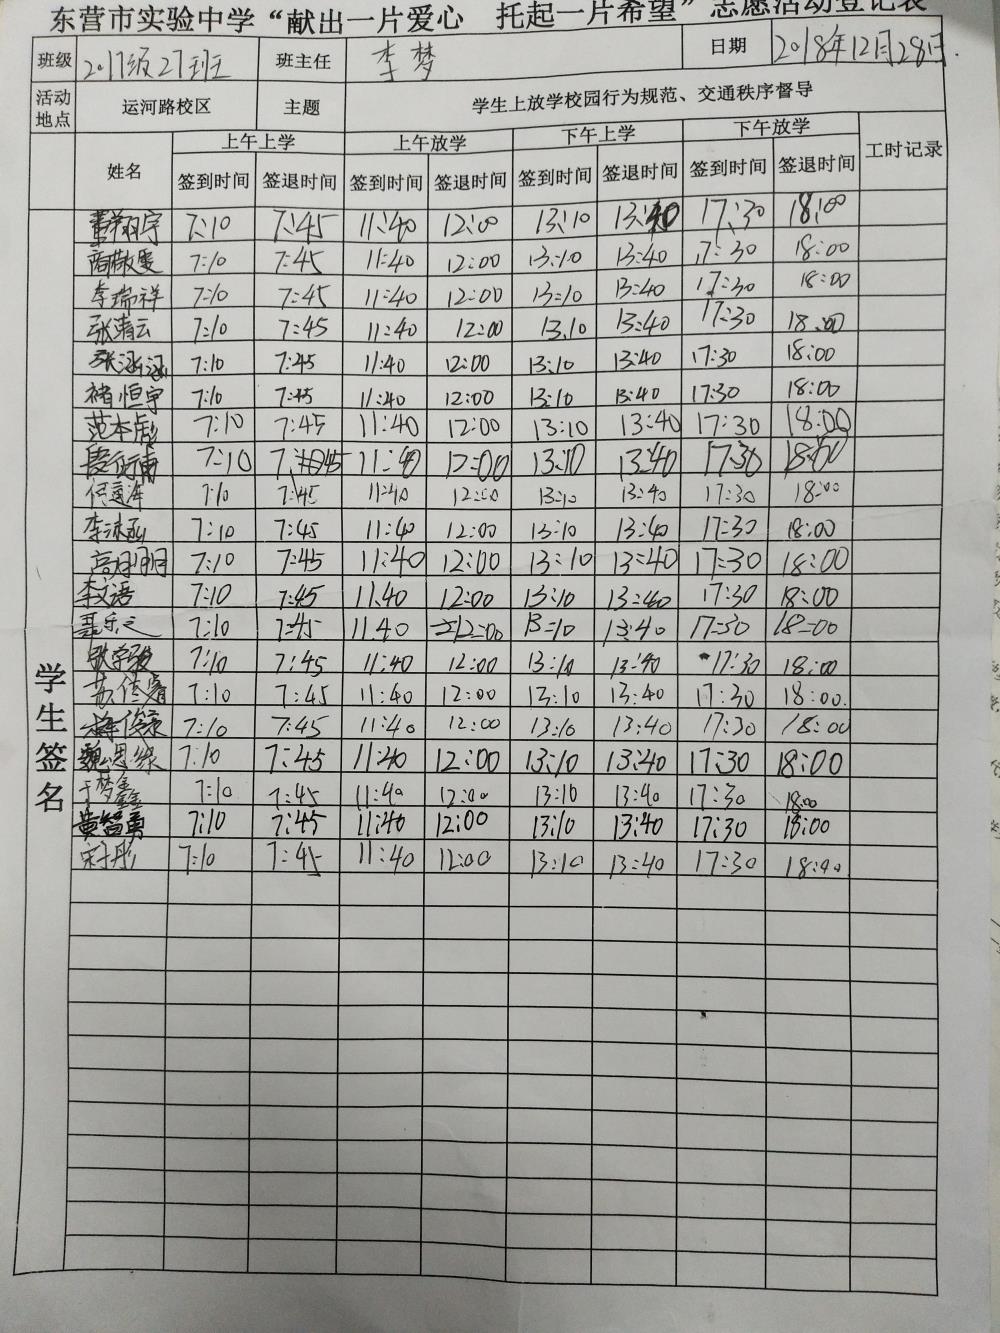 东营市实验中学“献出一片爱心 托起一片希望”志愿活动登记表
班级 2017级27班 班主任 李梦 日期 2018年12月28日.
活动地点 运河路校区 主题 学生上放学校园行为规范、交通秩序督导
姓名 上午上学 上午放学 下午上学 下午放学 工时记录
签到时间 签退时间 签到时间 签退时间 签到时间 签退时间 签到时间 签退时间
学生签名
董翔宇 7:10 7:45 11:40 12:00 13:10 13:40 17:30 18:00
商敬雯 7:10 7:45 11:40 12:00 13:10 13:40 17:30 18:00
李瑞祥 7:10 7:45 11:40 12:00 13:10 13:40 17:30 18:00
张清云 7:10 7:45 11:40 12:00 13:10 13:40 17:30 18:00
张涵涵 7:10 7:45 11:40 12:00 13:10 13:40 17:30 18:00
褚恒宇 7:10 7:45 11:40 12:00 13:10 13:40 17:30 18:00
范本彪 7:10 7:45 11:40 12:00 13:10 13:40 17:30 18:00
7:10 7:45 11:40 12:00 13:10 13:40 17:30 18:00
7:10 7:45 11:40 12:00 13:10 13:40 17:30 18:00
李沐函 7:10 7:45 11:40 12:00 13:10 13:40 17:30 18:00
高月明 7:10 7:45 11:40 12:00 13:10 13:40 17:30 18:00
李文语 7:10 7:45 11:40 12:00 13:10 13:40 17:30 18:00
聂乐之 7:10 7:45 11:40 12:00 13:10 13:40 17:30 18:00
7:10 7:45 11:40 12:00 13:10 13:40 17:30 18:00
苏佳睿 7:10 7:45 11:40 12:00 13:10 13:40 17:30 18:00.
7:10 7:45 11:40 12:00 13:10 13:40 17:30 18:00
魏思缘 7:10 7:45 11:40 12:00 13:10 13:40 17:30 18:00
于梦鑫 7:10 7:45 11:40 12:00 13:10 13:40 17:30 18:00
黄智勇 7:10 7:45 11:40 12:00 13:10 13:40 17:30 18:00
宋子彤 7:10 7:45 11:40 12:00 13:10 13:40 17:30 18:00